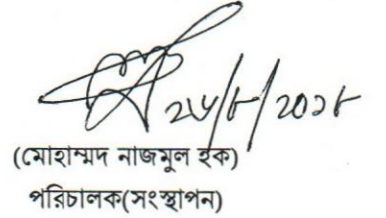 ২৮/৮/২০১৮
(মোহাম্মদ নাজমুল হক)
পরিচালক(সংস্থাপন)